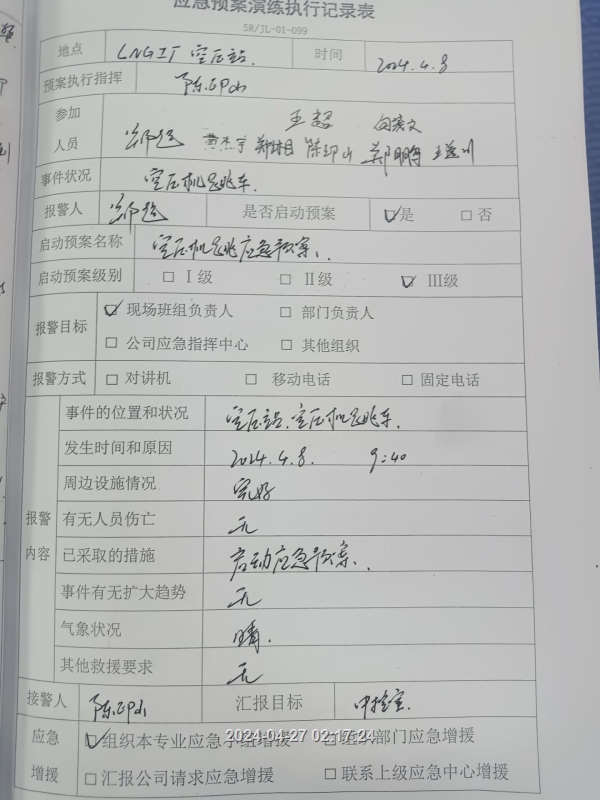 应急预案演练执行记录表
SR/JL-01-099
地点 LNG工厂 空压站. 时间 2024.4.8
预案执行指挥 陈印山
参加 王超
人员 陈印山 郑鹏
事件状况 空压机总跳车.
报警人 是否启动预案 ☑是 □否
启动预案名称 空压机总跳应急预案.
启动预案级别 □Ⅰ级 □Ⅱ级 ☑Ⅲ级
报警目标 ☑现场班组负责人 □部门负责人
□公司应急指挥中心 □其他组织
报警方式 □对讲机 □移动电话 □固定电话
报警内容
事件的位置和状况 空压站.空压机总跳车.
发生时间和原因 2024.4.8. 9:40
周边设施情况 完好
有无人员伤亡 无
已采取的措施 启动应急预案.
事件有无扩大趋势 无
气象状况 晴.
其他救援要求 无
接警人 陈印山 汇报目标 中控室.
2024-04-27 02:17:24
应急 ☑组织本专业应急小组增援 □组织部门应急增援
增援 □汇报公司请求应急增援 □联系上级应急中心增援